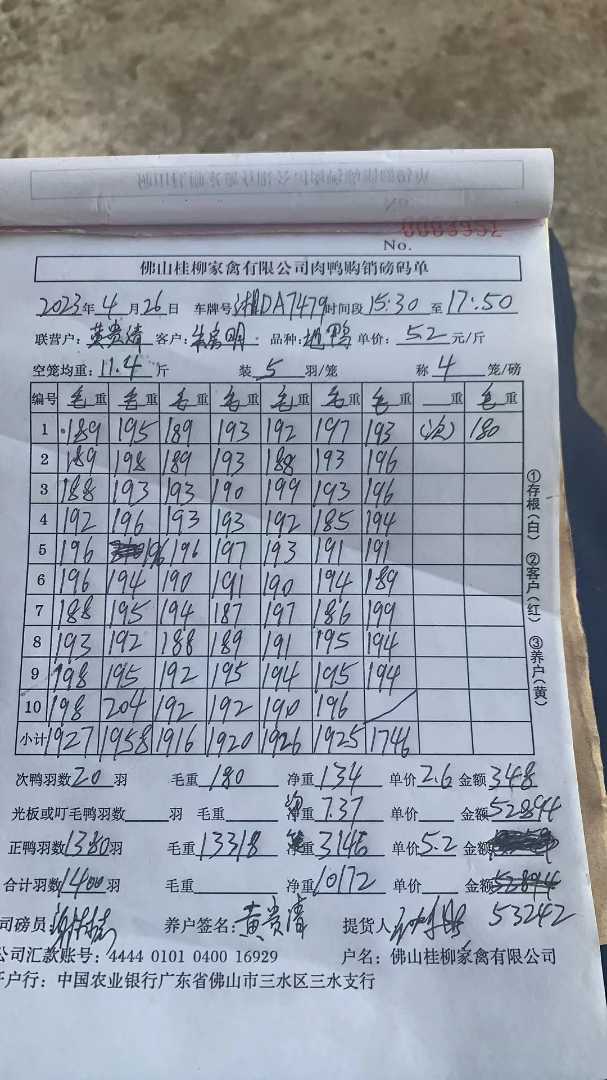 No.
佛山桂柳家禽有限公司肉鸭购销磅码单
2023年4月26日 车牌号湘DA7479时间段15:30至17:50
联营户:黄贵清 客户: 品种: 鸭 单价:5.2元/斤
空笼均重:11.4斤 装5羽/笼 称4笼/磅
编号 毛重 毛重 毛重 毛重 毛重 毛重 毛重 重 毛重
1 189 195 189 193 192 197 193 (次) 180
2 189 198 189 193 188 193 196
3 188 193 193 190 199 193 196
4 192 196 193 193 192 185 194
5 196 196 196 197 193 191 191
6 196 194 190 191 190 194 189
7 188 195 194 187 197 186 199
8 193 192 188 189 191 195 194
9 198 195 192 195 194 195 194
10 198 204 192 192 190 196
小计 1927 1958 1916 1920 1926 1925 1746
①存根(白) ②客户(红) ③养户(黄)
次鸭羽数20羽 毛重180 净重134 单价2.6 金额348
光板或叮毛鸭羽数 羽 毛重 净重7.37 单价 金额52894
正鸭羽数1380羽 毛重13318 净重3146 单价5.2 金额
合计羽数1400羽 毛重 净重10172 单价 金额52894
司磅员 养户签名:黄贵清 提货人 53242
公司汇款账号:4444 0101 0400 16929 户名:佛山桂柳家禽有限公司
开户行:中国农业银行广东省佛山市三水区三水支行